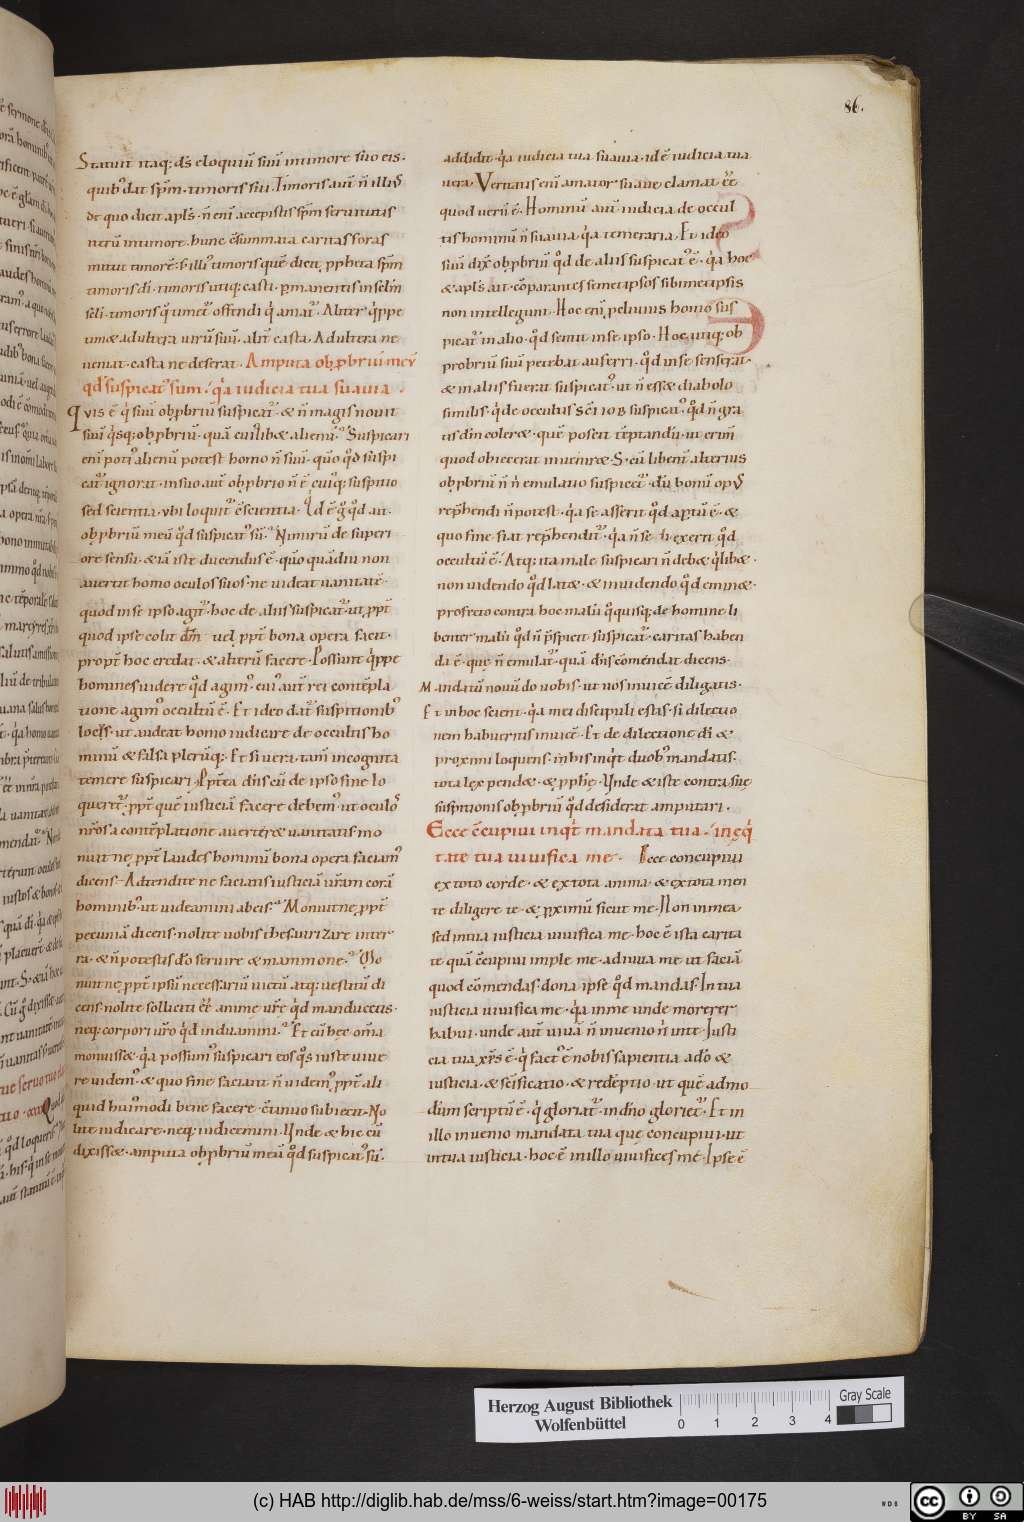 86.
Statuit itaq; ds̄ eloquiū suū in timore suo eis.
quib' dat spm̄ timoris sui. Timoris aūt n̄ illi'
de quo dicit apl's. n̄ eni accepistis spm̄ seruitutis
iterū in timore. hunc c̄summata caritas foras
mittit timorē. s; illi' timoris quē dicit ppheta spm̄
timoris di. timoris utiq; casti. pmanentis in sclm̄
scli. timoris q' timet' offendi q' amat'. Aliter q'ppe
timet adultera uirū suū. alit casta. Adultera ne
ueniat. casta ne deserat. Amputa obpbriū meū
qd' suspicat' sum. q'a iudicia tua suauia.
Quis ē q' suū obpbriū suspicat'. & n̄ magis nouit
suū q'sq; obpbriū. quā cuilibet alienū. Suspicari
eni poti' alienū potest homo n̄ suū. quō q'd suspi
cat' ignorat. in suo aūt obpbrio n̄ ē cuiq; suspitio
sed scientia. ubi loquit' c̄scientia. Qd' ē g' q'd ait.
obpbriū meū q'd suspicat' sū. Nimirū de superi
ore sensu. & iā iste ducendus ē. quō quādiu non
auertit homo oculos suos. ne uideat uanitatē.
quod in se ipso agit'. hoc de aliis suspicat'. ut ppt̄
quod ipse colit dm̄ uel ppt̄ bona opera facit.
propt̄ hoc credat. & alterū facere. Possunt q'ppe
homines uidere q'd agim'. cui' aūt rei contēpla
tione agim' occultū ē. Et ideo dat' suspitionib'
locus. ut audeat homo iudicare de occultis ho
minū & falsa plerūq;. Et si uera. tam̄ incognita
temere suspicari. Ppt̄ea dn̄s cū de ipso fine lo
queret'. ppt̄ quē iusticiā facere debem'. ut oculos
nr̄os a contēplatione auerteret uanitatis mo
nuit ne ppt̄ laudes hominū bona opera faciam'
dicens. Adtendite ne faciatis iusticiā ur̄am corā
hominib' ut uideamini ab eis. Monuit ne ppt̄
pecuniā dicens. nolite uobis thesaurizare in ter
ra. & n̄ potestis do seruire & mammone. Mo
nuit ne ppt̄ ipsū necessariū uictū atq; uestitū di
cens. nolite solliciti ee anime ur̄e q'd manducetis.
neq; corpori ur̄o q'd induamini. Et cū hęc om̄a
monuisset. q'a possum' suspicari eos q's iuste uiue
re uidem'. & quo fine faciant n̄ uidem'. ppt̄ ali
quid hui'modi bene facere. c̄tinuo subiecit. No
lite iudicare. ne iudicemini. Unde & hic cū
dixisset. amputa obpbriū meū q'd suspicat' sū.
addidit. q'a iudicia tua suauia. id ē iudicia tua
uera. Veritatis eni amator suaue clamat ee
quod uerū ē. Hominū aūt iudicia de occul
tis hominū n̄ suauia. q'a temeraria. Et ideo
suū dix' obpbriū q'd de aliis suspicat' ē. q'a hoc
& apl's ait. c̄parantes semetipsos sibimetipsis
non intellegunt. Hoc eni pcliuius homo sus
picat' in alio. q'd sentit in se ipso. Hoc utiq; ob
probriū suū petebat auferri. q'd in se senserat.
& in aliis fuerat suspicat'. ut n̄ esset diabolo
similis. q' de occultis sc̄i iob suspicat'. q'd n̄ gra
tis dm̄ coleret. quē poscit tēptandū. ut crim̄
quod obiecerat inueniret. S; cū libeni alterius
obpbriū n̄ n̄ emulatio suspicet'. dū bonū op'
rep̄hendi n̄ potest. q'a se asserit q'd aptū ē. &
quo fine fiat rep̄hendit'. q'a n̄ se h' exerit q'd
occultū ē. Atq; ita male suspicari n̄ debet q'libet.
non uidendo q'd latet. & inuidendo q'd eminet.
profecto contra hoc malū q'd quisq; de homine li
benter malū q'd n̄ p̄spicit suspicat'. caritas haben
da ē. quę n̄ emulat'. quā dn̄s c̄mendat dicens.
Mandatū nouū do uobis. ut uos inuicē diligatis.
Et in hoc scient. q'a mei discipuli estis. si dilectio
nem habueritis inuicē. Et de dilectione di &
proximi loquens. in his inq't duob' mandatis.
tota lex pendet. & pphę. Unde & iste contra suę
susptionis obpbriū q'd desiderat amputari.
Ecce c̄cupiui inq't mandata tua. in eq'
tate tua uiuifica me. Ecce concupiui
ex toto corde. & ex tota anima. & ex tota men
te diligere te. & pximū sicut me. Non in mea
sed in tua iusticia uiuifica me. hoc ē ista carita
te quā c̄cupiui imple me. adiuua me ut faciā
quod c̄mendas. dona ipse q'd mandas. In tua
iusticia uiuifica me. q'a in me unde morerer
habui. unde aūt uiuā n̄ inuenio n̄ in te. Iusti
cia tua xp̄s ē. q' fact' ē nobis sapientia a do &
iusticia. & sc̄ificatio. & redēptio. ut quē admo
dum scriptū ē. q' gloriat'. in dn̄o gloriet'. Et in
illo inuenio mandata tua que concupiui. ut
in tua iusticia. hoc ē in illo uiuifices me. Ipse ē
Herzog August Bibliothek
Wolfenbüttel
0 1 2 3 4
Gray Scale
(c) HAB http://diglib.hab.de/mss/6-weiss/start.htm?image=00175
cc BY SA